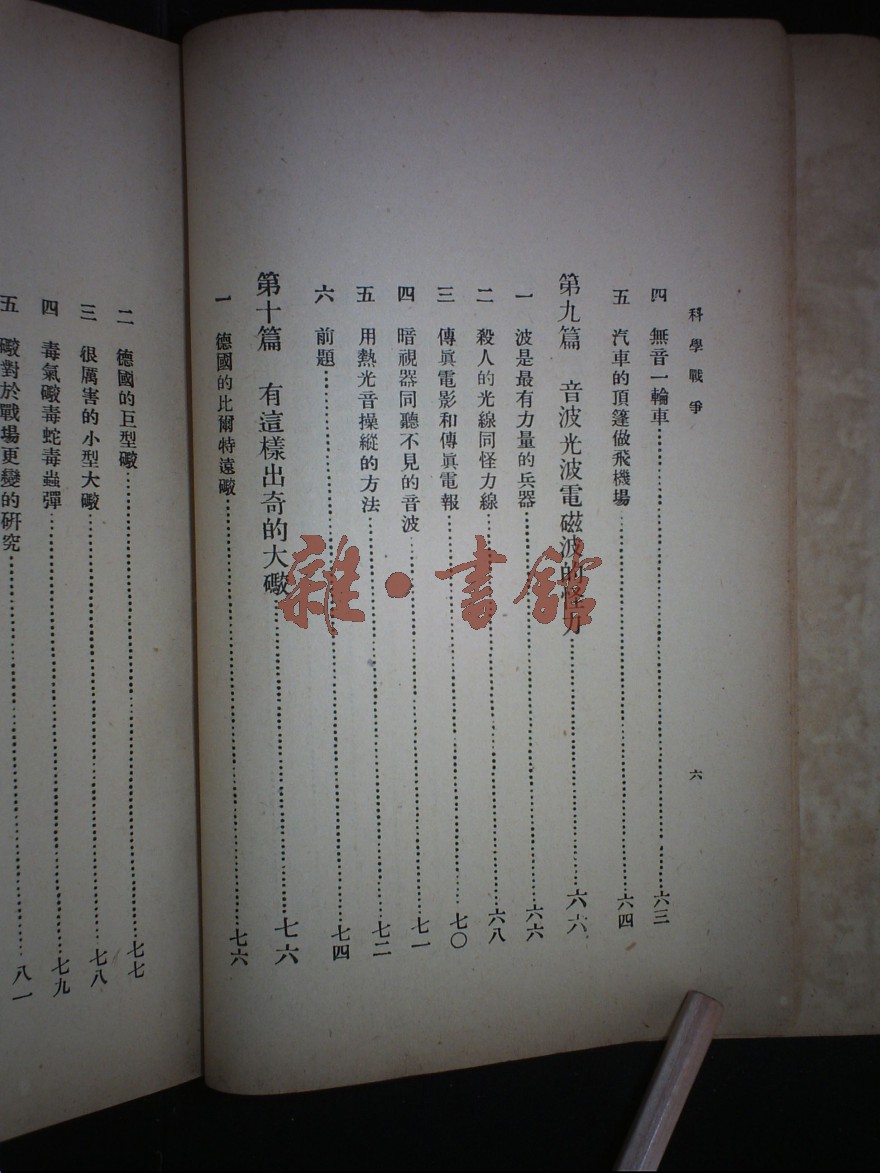 科學戰爭
六
四 無音一輪車……六三
五 汽車的頂篷做飛機場……六四
第九篇 音波光波電磁波的怪力……六六
一 波是最有力量的兵器……六六
二 殺人的光線同怪力線……六八
三 傳眞電影和傳眞電報……七〇
四 暗視器同聽不見的音波……七一
五 用熱光音操縱的方法……七二
六 前題……七四
第十篇 有這樣出奇的大礮……七六
一 德國的比爾特遠礮……七六
二 德國的巨型礮……七七
三 很厲害的小型大礮……七八
四 毒氣礮毒蛇毒蟲彈……七九
五 礮對於戰場更變的研究……八一
雜·書館